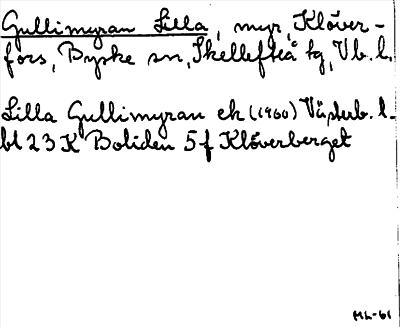 Gullimyran Lilla, myr, Klöver-
fors, Byske sn, Skellefteå tg, Vb. l.
Lilla Gullimyran ek (1960) Västerb. l.
bl 23 K Boliden 5 f Klöverberget
ML-61